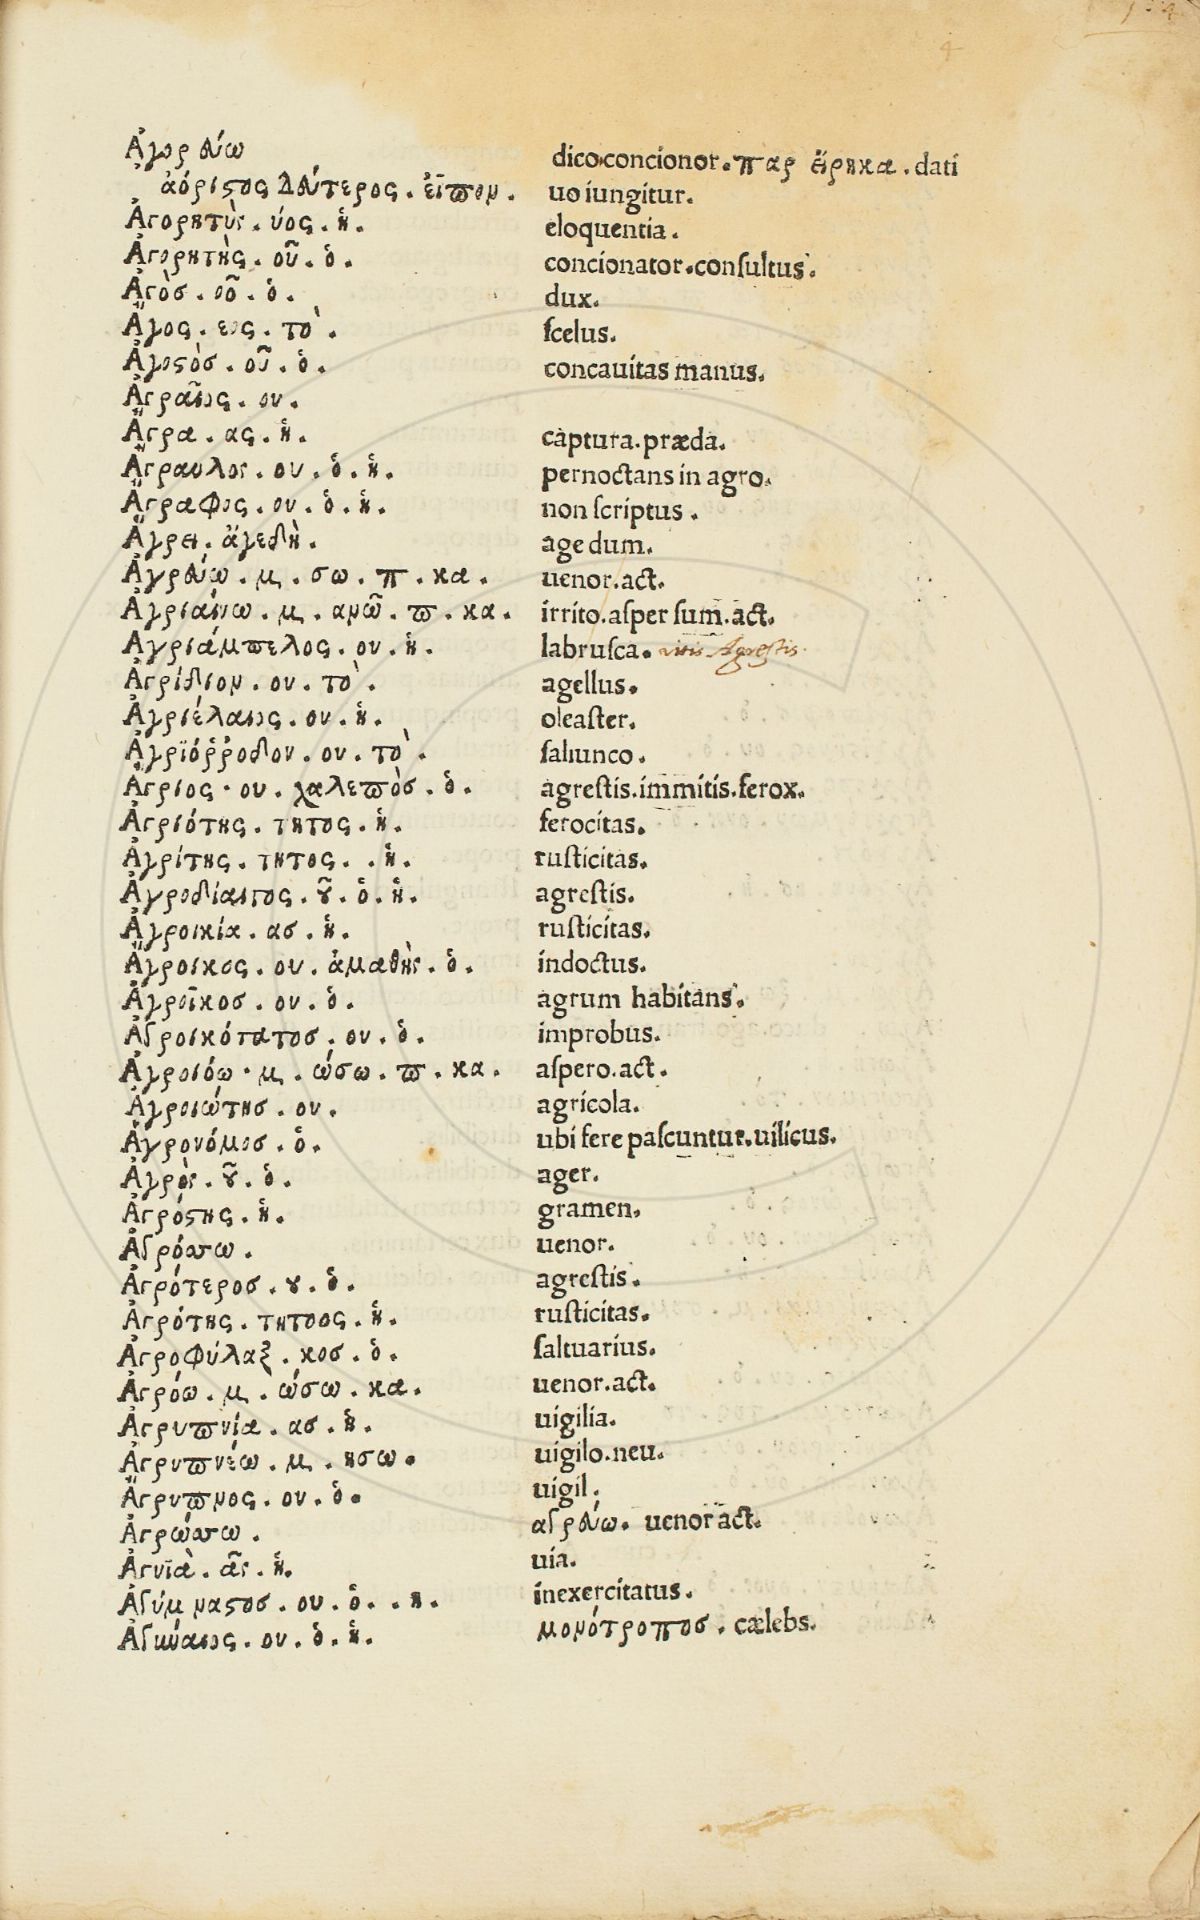 Ἀγορεύω dico.concionor.παρ εἴρηκα.dati
ἀόριστος δεύτερος.εἶπον. uo iungitur.
Ἀγορητὺς.ύος.ἡ. eloquentia.
Ἀγορητὴς.οῦ.ὁ. concionator.conſultus.
Ἀγὸσ.οῦ.ὁ. dux.
Ἄγος.εος.τὸ. ſcelus.
Ἀγοςὸσ.οῦ.ὁ. concauitas manus.
Ἀγραῖος.ου.
Ἄγρα.ας.ἡ. captura.præda.
Ἄγραυλος.ου.ὁ.ἡ. pernoctans in agro.
Ἄγραφος.ου.ὁ.ἡ. non ſcriptus.
Ἄγρει.ἄγεδὴ. age dum.
Ἀγρεύω.μ.σω.π.κα. uenor.act.
Ἀγριαίνω.μ.ανῶ.π.κα. irrito.aſper ſum.act.
Ἀγριάμπελος.ου.ἡ. labruſca. uitis Agreſtis.
Ἀγρίδιον.ου.τὸ. agellus.
Ἀγριέλαιος.ου.ἡ. oleaſter.
Ἀγριόῤῥοδον.ου.τὸ. ſaliunco.
Ἄγριος.ου.χαλεπὸσ.ὁ. agreſtis.immitis.ferox.
Ἀγριότης.τητος.ἡ. ferocitas.
Ἀγρίτης.τητος..ἡ. ruſticitas.
Ἀγροδίαιτος.ȣ͂.ὁ.ἡ. agreſtis.
Ἀγροικία.ασ.ἡ. ruſticitas.
Ἄγροικος.ου.ἀμαθὴς.ὁ. indoctus.
Ἀγροῖκοσ.ου.ὁ. agrum habitans.
Ἀγροικότατοσ.ου.ὁ. improbus.
Ἀγροιόω.μ.ώσω.π.κα. aſpero.act.
Ἀγροιώτησ.ου. agricola.
Ἀγρονόμοσ.ὁ. ubi fere paſcuntur.uilicus.
Ἀγρὸς.ȣ͂.ὁ. ager.
Ἀγρόςης.ἡ. gramen.
Ἀγρόττω. uenor.
Ἀγρότεροσ.ȣ.ὁ. agreſtis.
Ἀγρότης.τητοος.ἡ. ruſticitas.
Ἀγροφύλαξ.κοσ.ὁ. ſaltuarius.
Ἀγρόω.μ.ώσω.κα. uenor.act.
Ἀγρυπνία.ασ.ἡ. uigilia.
Ἀγρυπνέω.μ.ησω. uigilo.neu.
Ἄγρυπνος.ου.ὁ. uigil.
Ἀγρώττω. αγρεύω. uenor act.
Ἀγυϊὰ.ᾶς.ἡ. uia.
Ἀγύμναςοσ.ου.ὁ..η. inexercitatus.
Ἀγύναιος.ου.ὁ.ἡ. μονότροποσ.cælebs.